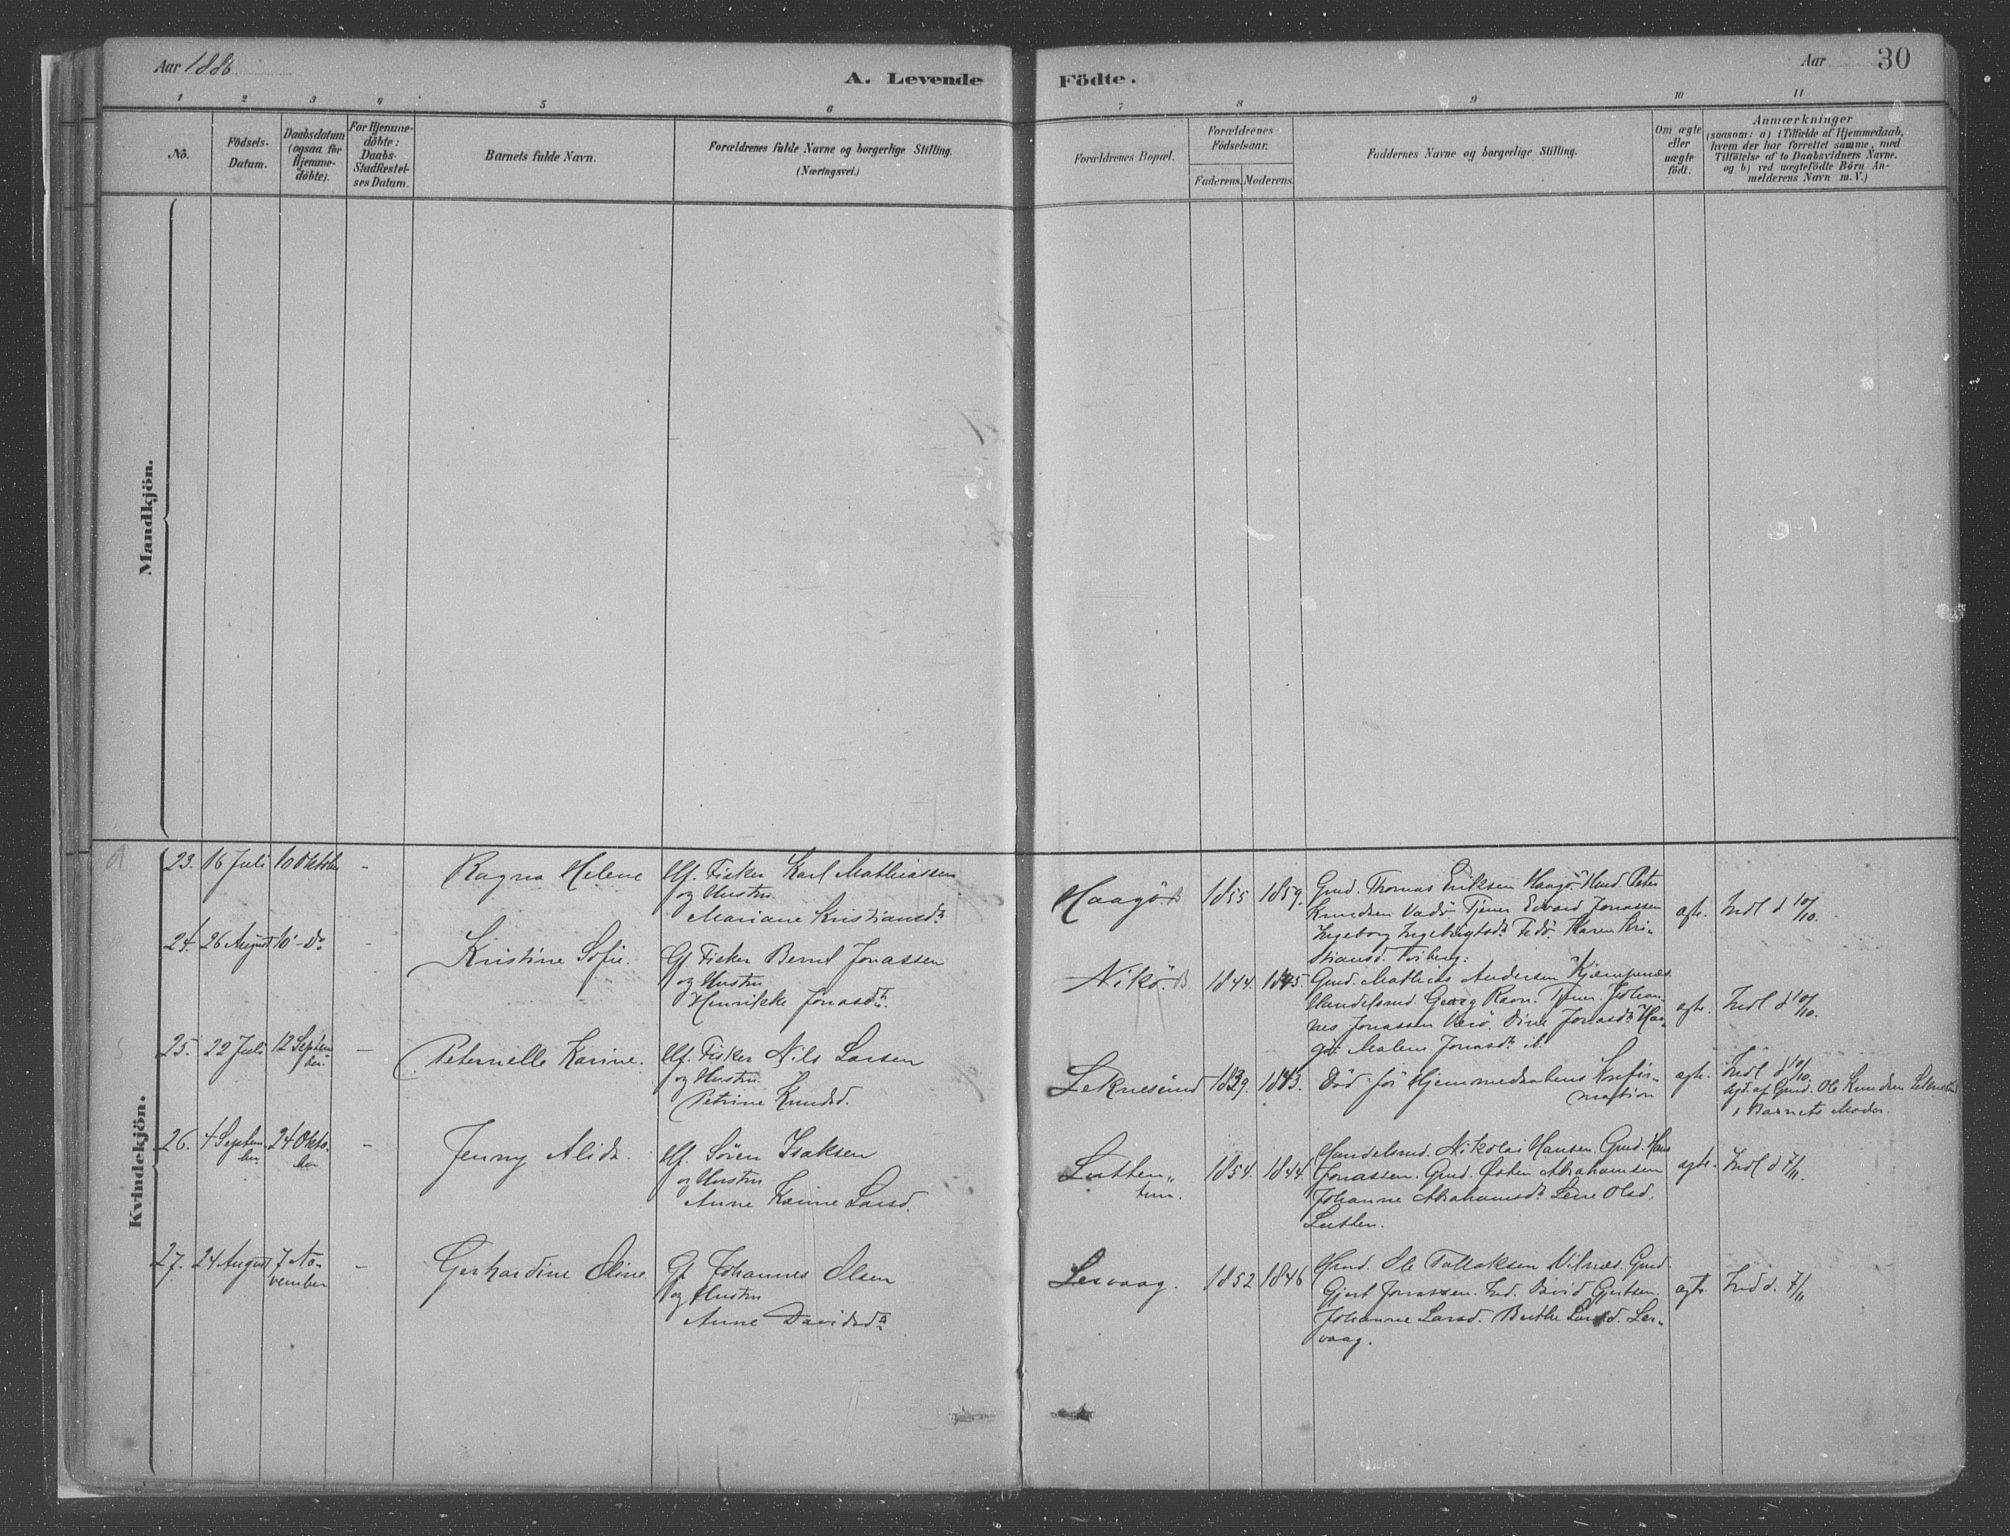 Aar 1886
A. Levende
Födte.
Aar
30
1 2 3 4 5 6 7 8 9 10 11
No.
Födsels-
Datum.
Daabsdatum
(ogsaa for
Hjemme-
döbte).
For Hjemme-
döbte:
Daabs-
Stadfæstel-
ses Datum.
Barnets fulde Navn.
Forældrenes fulde Navne og borgerlige Stilling.
(Næringsvei.)
Forældrenes Bopæl.
Forældrenes
Födselsaar.
Faderens. Moderens.
Faddernes Navne og borgerlige Stilling.
Om ægte
eller
uægte
födt.
Anmærkninger
(saasom: a) i Tilfælde af Hjemmedaab,
hvem der har forrettet samme, med
Tilföielse af to Daabsvidners Navne.
og b) ved uægtefödte Börn An-
melderens Navn m. V.)
Mandkjön.
Kvindekjön.
23. 16 Juli 10 Oktober - Ragna Helene
Fisker Karl Mathiassen
og Hustru
Mariane Kristiansdr
Haagö B 1855 1859.
Gmd. Thomas Eriksen Haagö. Gmd. Peter
Knudsen Tjener Edvard Jonassen
Ingeborg Ingebrigtsdr Fedö. Karen Kri-
stiansd.
ægte. Indl d 10/10.
24. 26 August 10 - Do - Kristine Sofie.
Gf. Fisker Bernt Jonassen
og Hustru
Henrikke Jonasdr.
Nikö. B 1844. 1845.
Gmd. Mathias Andersen Kjæmpenæs.
Handelsmd. Georg Ravn. Tjener Johan-
nes Jonassen Dine Jonasdr Haa-
gö. Malene Jonasdr
ægte. Indl d 10/10.
25. 22 Juli 12 Septem
ber. - Peternelle Karine.
Fisker Nils Larsen
og Hustru
Petrine Knudsd.
Leknesund 1839. 1843.
Död för Hjemmedaabens Konfir-
mation
ægte. Indl d 10/10.
af Gmd. Ole Knudsen Leknesund
Barnets Moder.
26. 4 Septem
ber 24 Okto-
ber - Jenny Alida.
Sören Isaksen
og Hustru
Anne Karine Larsd.
Lutten-
tun. 1854. 1844.
Handelsmd. Nikolai Hansen. Gmd. Hans
Jonassen. Gmd. Östen Abrahamsen
Johanne Abrahamsdr. Lene Olsd.
Lutten.
ægte. Indl d 7/11.
27. 24 August 7 No-
vember - Gerhardine Oline.
Gf. Johannes Olsen
og Hustru
Anne Davidsdr
Lervaag. 1852 1846
Gmd. Ole Tollaksen Nilnæs. Gmd.
Gjert Jonassen. Ind. David Gjertsen.
Johanne Larsd. Berthe Larsd. Ler-
vaag.
ægte Ind d. 7/11